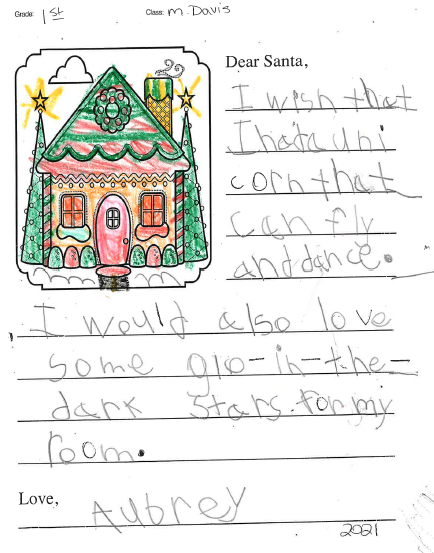 Grade: 1st Class: M. Davis
Dear Santa,
I wish that
I hata uni
corn that
can fly
and dance.
I would also love
some glo-in-the-
dark stars for my
room.
Love,
Aubrey
2021